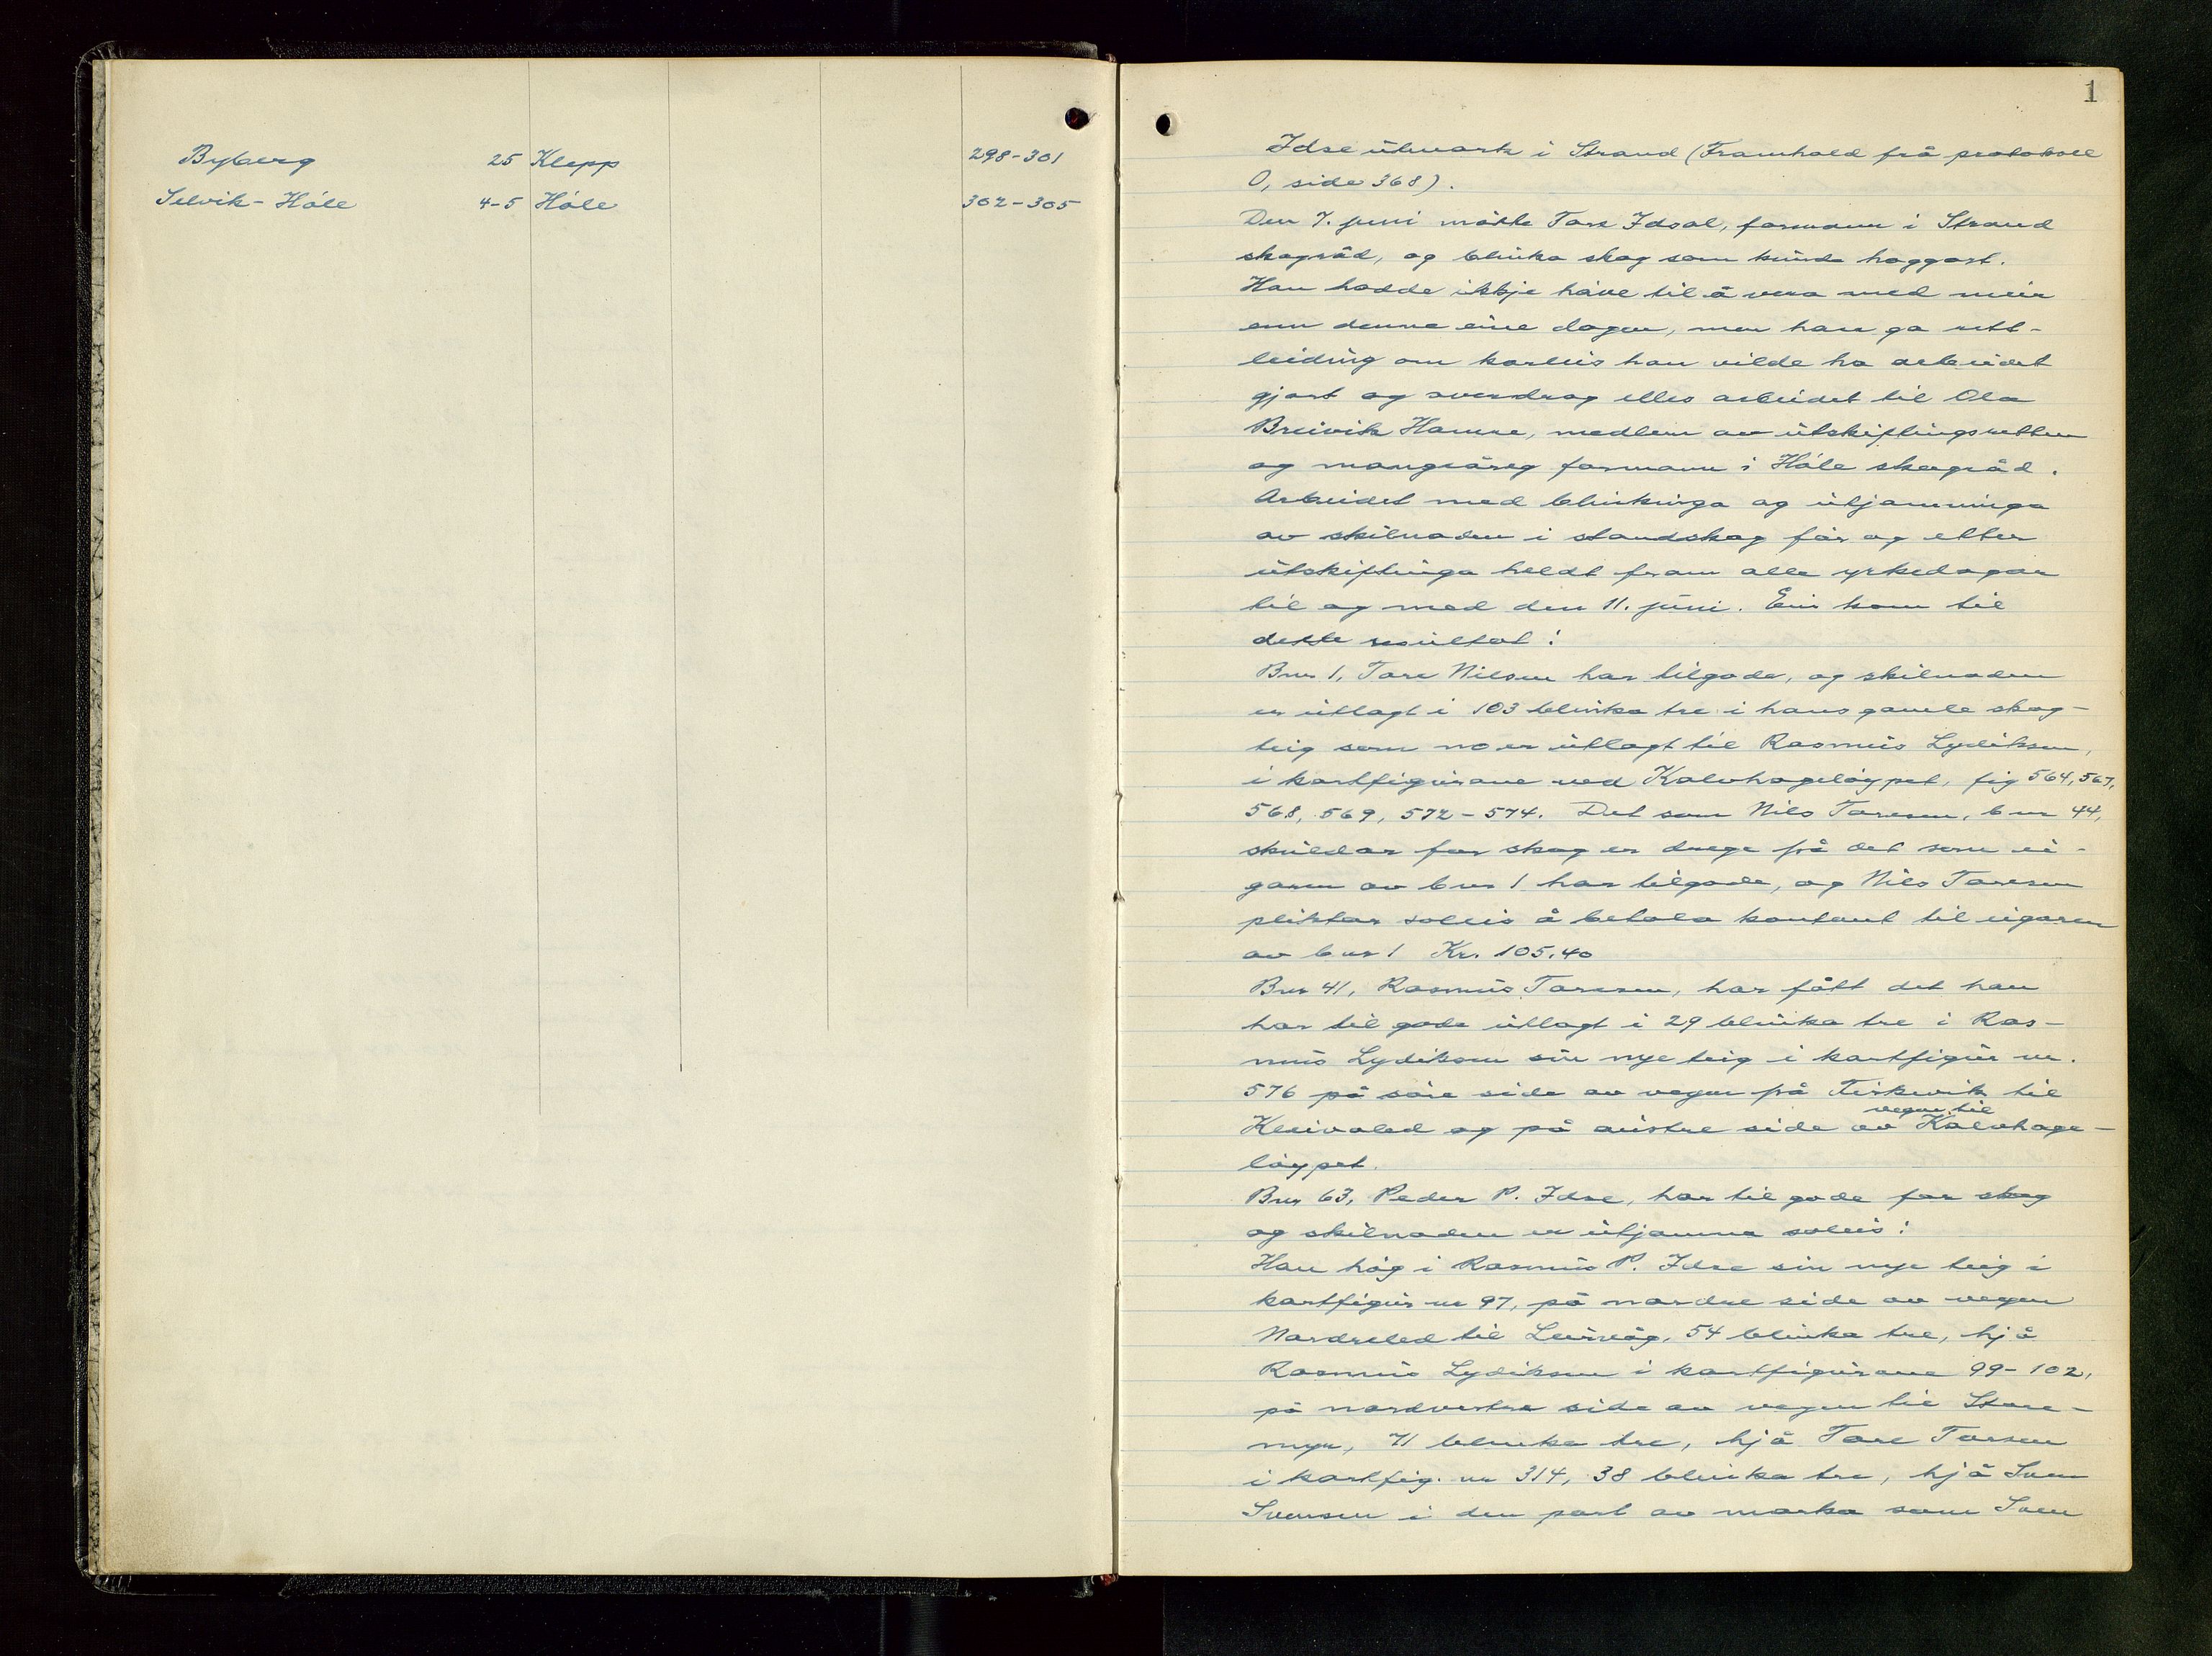 Byberg 25 Klepp 298-301
Selvik-Høle 4-5 Høle 302-305
1
Idse utmark i Strand (Framhald frå protokoll
O, side 368).
Den 7. juni møtte Tore Idsal, formann i Strand
skogråd, og blinka skog som kunde hoggast.
Han hadde ikkje høve til å vera med meir
enn denne eine dagen, men han ga rett-
leiding om korleis han vilde ha arbeidet
gjort og overdrog elles arbeidet til Ola
Breivik Hamre, medlem av utskiftingsretten
og mangeåreg formann i Høle skogråd.
Arbeidet med blinkinga og utjamninga
av skilnaden i standskog før og etter
utskiftinga heldt fram alle yrkedagar
til og med den 11. juni. Ein kom til
dette resultat:
Bnr 1, Tore Nilsen har tilgode, og skilnaden
er utlagt i 103 blinka tre i hans gamle skog-
teig som no er utlagt til Rasmus Lydiksen,
i kartfigurane ved Kalvhageløypet, fig 564, 567,
568, 569, 572-574. Det som Nils Toresen, bnr 44,
skuldar for skog er drege frå det som ei-
garen av bnr 1 har tilgode, og Nils Toresen
pliktar soleis å betala kontant til eigaren
av bnr 1 Kr. 105.40
Bnr 41, Rasmus Toresen, har fått det han
har til gode utlagt i 29 blinka tre i Ras-
mus Lydiksen sin nye teig i kartfigur nr.
576 på søre side av vegen frå Kirkevik til
Kleivaled og på austre side av vegen til Kalvhage-
løypet.
Bnr 63, Peder P. Idse, har til gode for skog
og skilnaden er utjamna soleis:
Han høg i Rasmus P. Idse sin nye teig i
kartfigur nr 97, på nordre side av vegen
Nordreled til Leirvåg, 54 blinka tre, hjå
Rasmus Lydiksen i kartfigurane 99-102,
på nordvestre side av vegen til Store-
myr, 71 blinka tre, hjå Tore Torsen
i kartfig. nr 314, 38 blinka tre, hjå Sven
Svensen i den part av marka som Sven